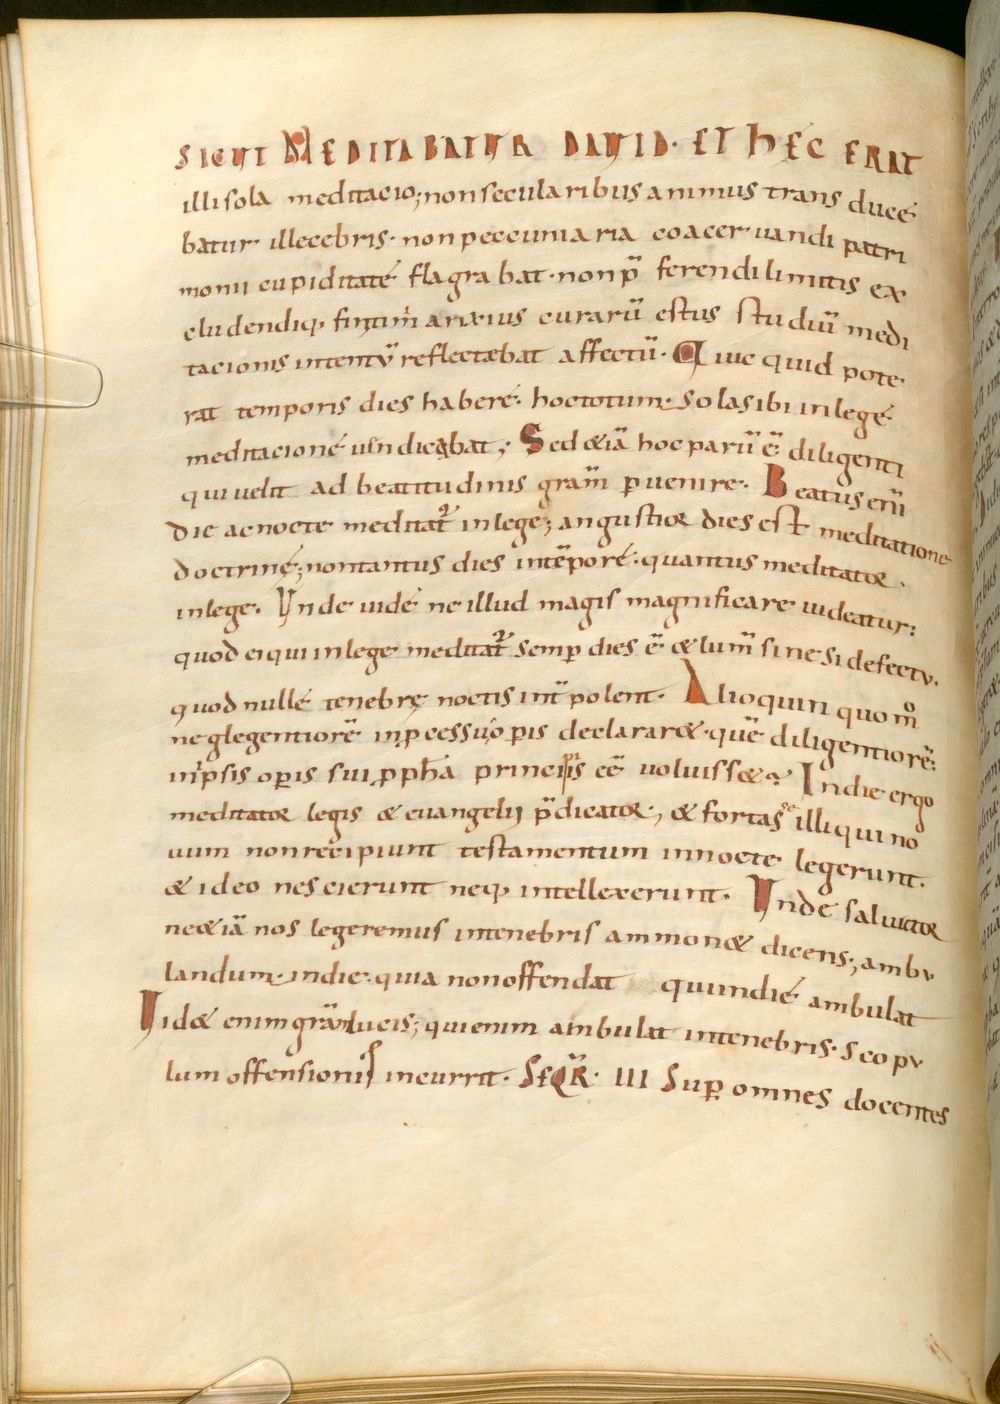 SICUT MEDITABATUR DAUID· ET hęC ERAT
illi sola meditacio; non secularibus animus trans ducé
batur illecebris· non peccuniaria coacer uandi patri
monii cupiditaté flagrabat· non p̄ ferendi limitis ex
cludendiq, finitim̄ anxius curarū estus studiū medi
tacionis intentū reflectæbat affectū· Quic quid pote
rat temporis dies haberé· hoc totum· solas ibi in legé
meditacioné uindicabat; Sed &iā hoc parū ē diligenti
qui uelit ad beatitudinis gram̄ ꝑuenire· Beatus enī
die ac nocte meditat᷒ in lege; angustior dies est meditatione
doctrinę; non tantus dies in tēporé· quantus meditator
in lege· Unde uidé ne illud magis magnificare uideatur:
quod ei qui in lege meditat᷒ semꝑ dies ē & lum̄ sine si defectu·
quod nullé tenebrę noctis int̄polent· Alioquin quom̊
neglegentiorē in ꝓcessu oꝑis declarar&· quē diligentiorē
in ipsis oꝑis sui ꝓph̄a principiis eē uoluiss&? In die ergo
meditator legis & euangelij p̄dicator; & fortas se illi qui no
uum non recipiunt testamentum in nocte legerunt·
& ideo nescierunt neq, intellexerunt· Unde saluator
ne&iā nos legeremus in tenebris ammon& dicens; ambu
landum· in die· quia non offendat qui in dié ambulat
Uid& enim grām lucis; qui enim ambulat in tenebris· scopu
lum offensionis incurrit· SEQR̄· III Suꝑ omnes docentes